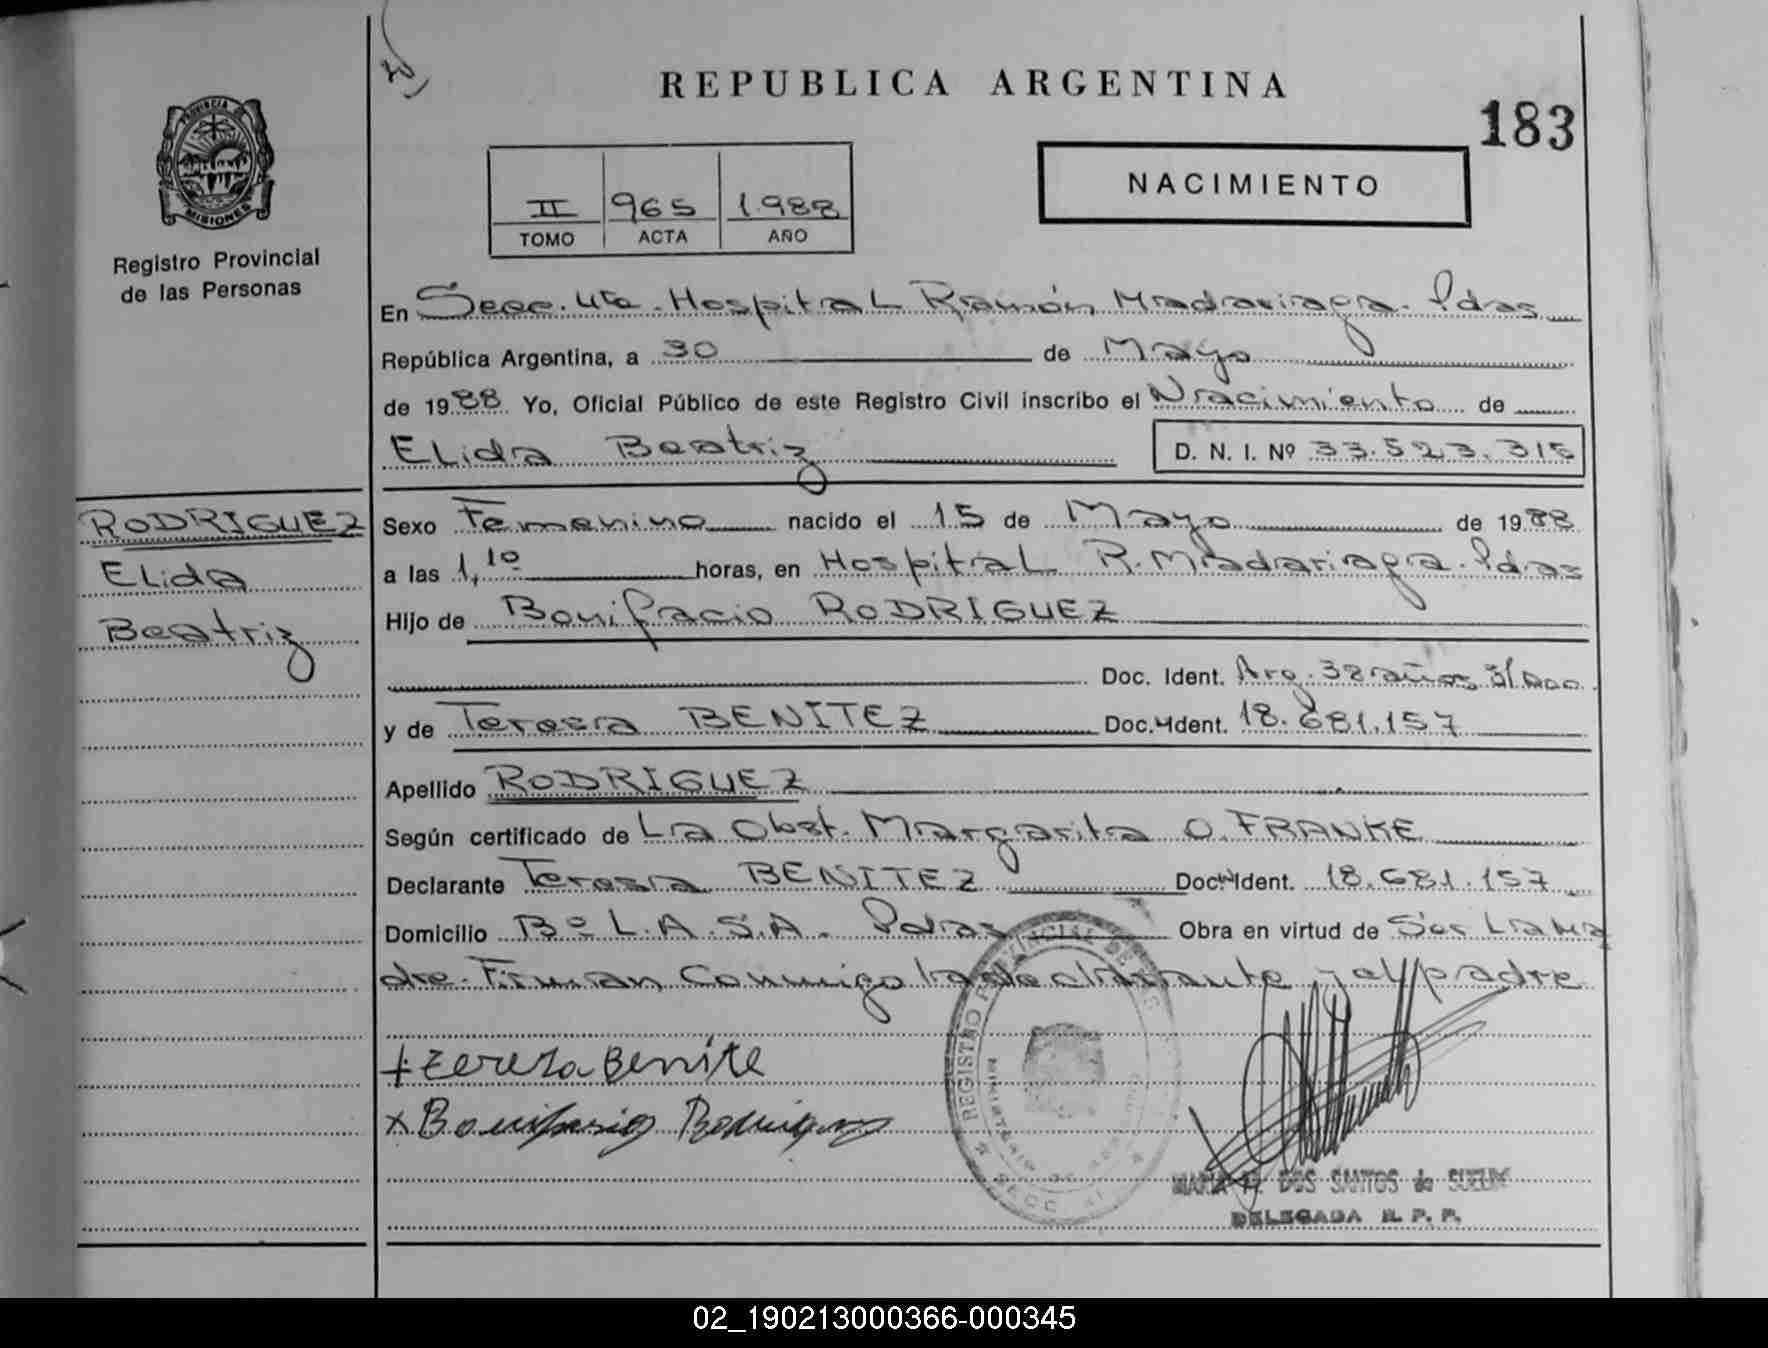 REPUBLICA ARGENTINA
183
PROVINCIA DE
MISIONES
Registro Provincial
de las Personas
II 965 1.988
TOMO ACTA AÑO
NACIMIENTO
En Secc. 4ta. Hospital Ramón Madariaga. Pdas
República Argentina, a 30 de Mayo
de 1988 Yo, Oficial Público de este Registro Civil inscribo el Nacimiento de
Elida Beatriz D. N. I. Nº 33.523.315
RODRIGUEZ
Elida
Beatriz
Sexo Femenino nacido el 15 de Mayo de 1988
a las 1,10 horas, en Hospital R. Madariaga. Pdas
Hijo de Bonifacio RODRIGUEZ
Doc. Ident. Arg. 32 años s/Doc.
y de Teresa BENITEZ Doc. Ident. 18.681.157
Apellido RODRIGUEZ
Según certificado de La Obst. Margarita O. FRANKE
Declarante Teresa BENITEZ Doc. Ident. 18.681.157
Domicilio Bº L.A.S.A. Pdas Obra en virtud de Ser La Ma
dre. Firman Conmigo la declarante y el padre
+ tereza Benite
x Bonifasio Rodriguez
REGISTRO PROVINCIAL DE
SECC
MARIA DOS SANTOS de
DELEGADA R. P. P.
02_190213000366-000345